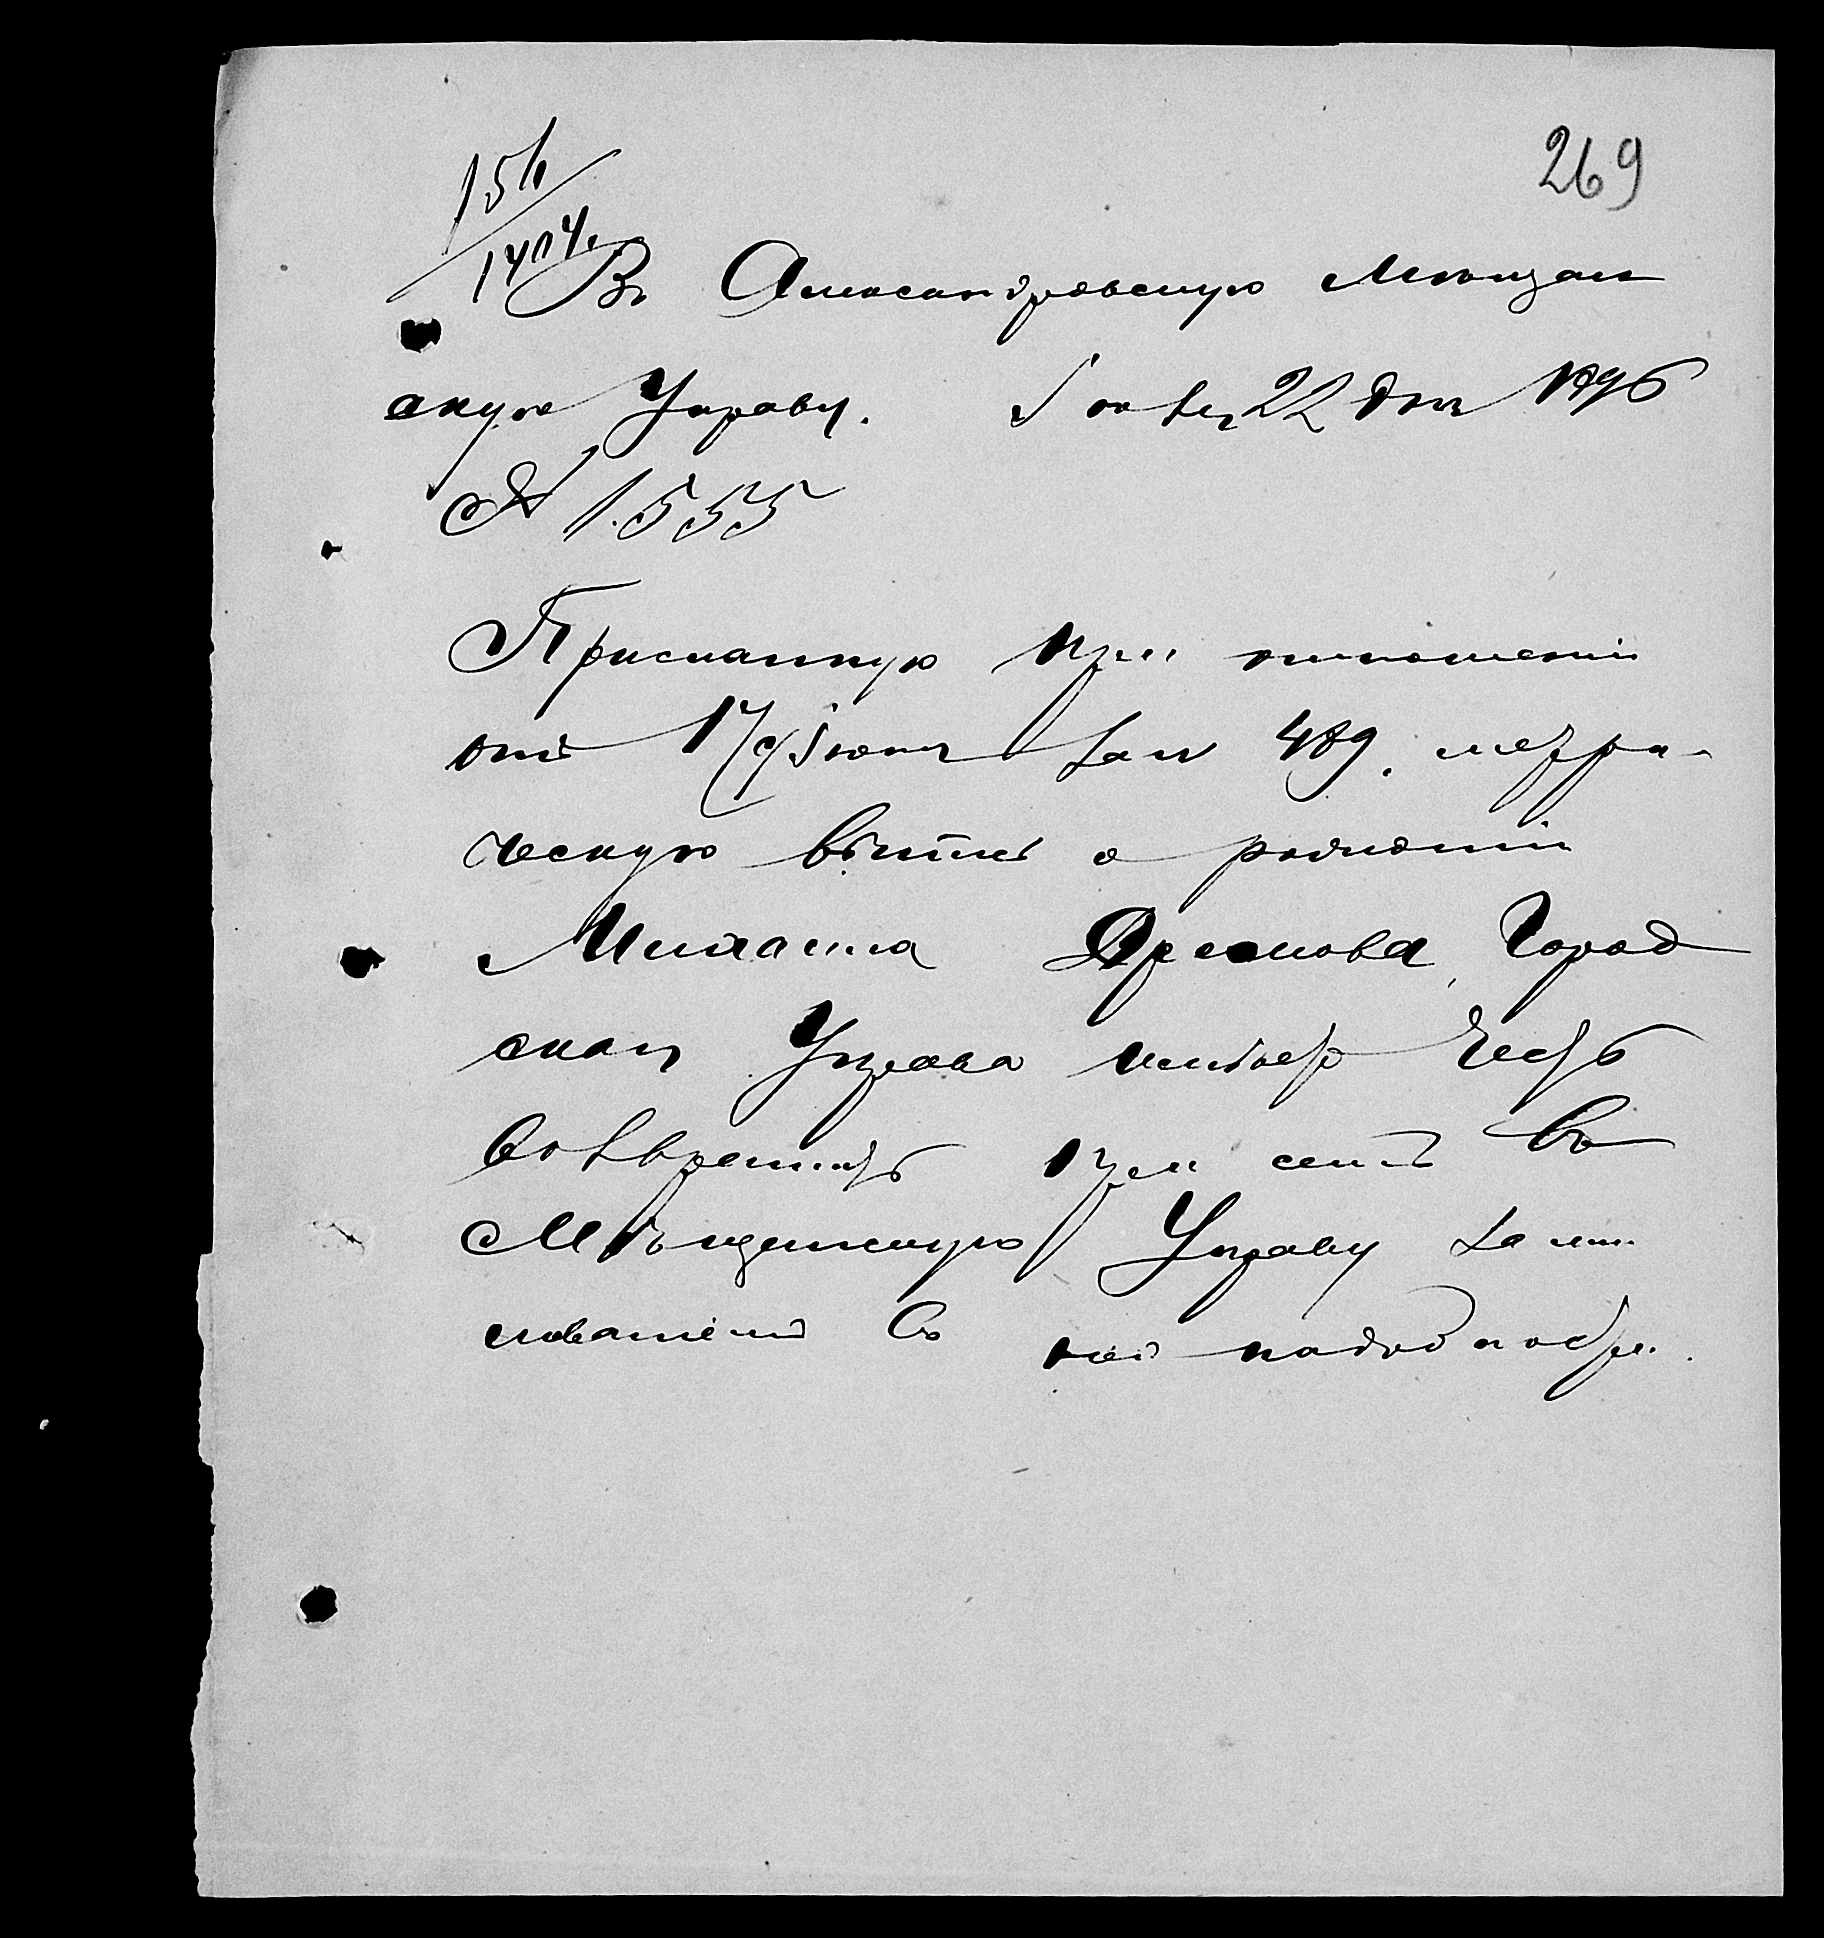 269
Въ Александровскую Мѣщан
скую Управу. 22 дня 1896
№ 1555
Присланную при отношеніи
отъ 17 Іюня за № 489. метри-
ческую выпись о рожденіи
Михаила Город
ская Управа имѣетъ честь
возвратить при семъ въ
Мѣщанскую Управу за мин
ованіемъ въ ней надобности.